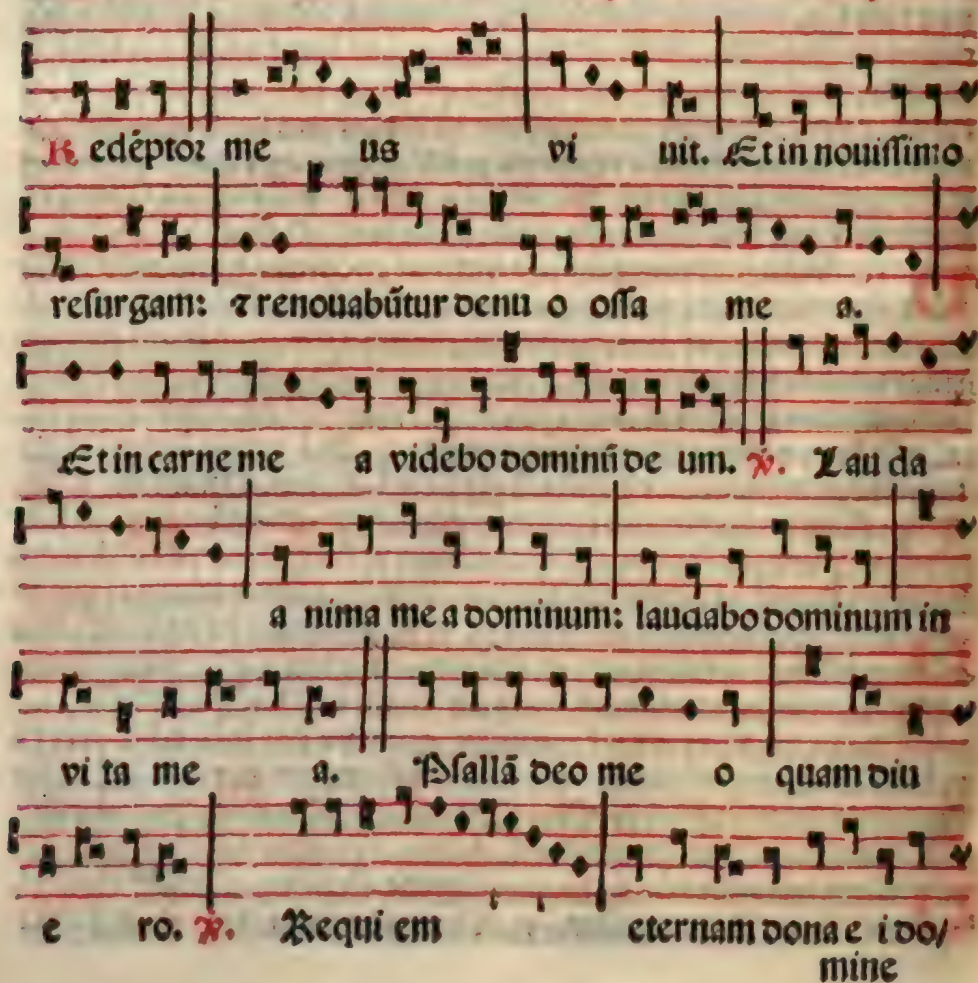 Redẽptor me us vi uit. Et in nouiſſimo
reſurgam: ⁊ renouabũtur denu o oſſa me a.
Et in carne me a videbo dominũ de um. ℣. Lau da
a nima me a dominum: laudabo dominum in
vi ta me a. Pſallã deo me o quam diu
e ro. ℣. Requi em eternam dona e i do/
mine